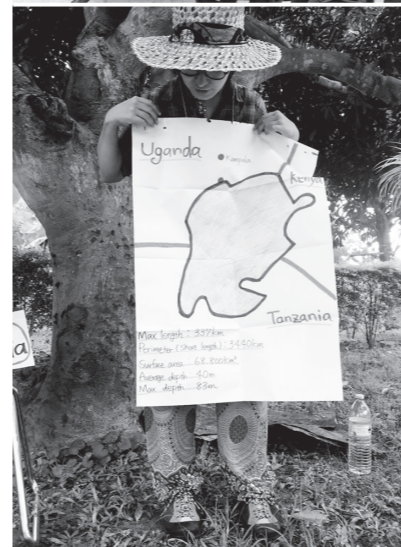 Uganda
Kampala
Kenya
Tanzania
Max length: 337km
Perimeter (Shore length): 3440km
Surface area 68.800km²
Average depth 40m
Max depth 83m
a